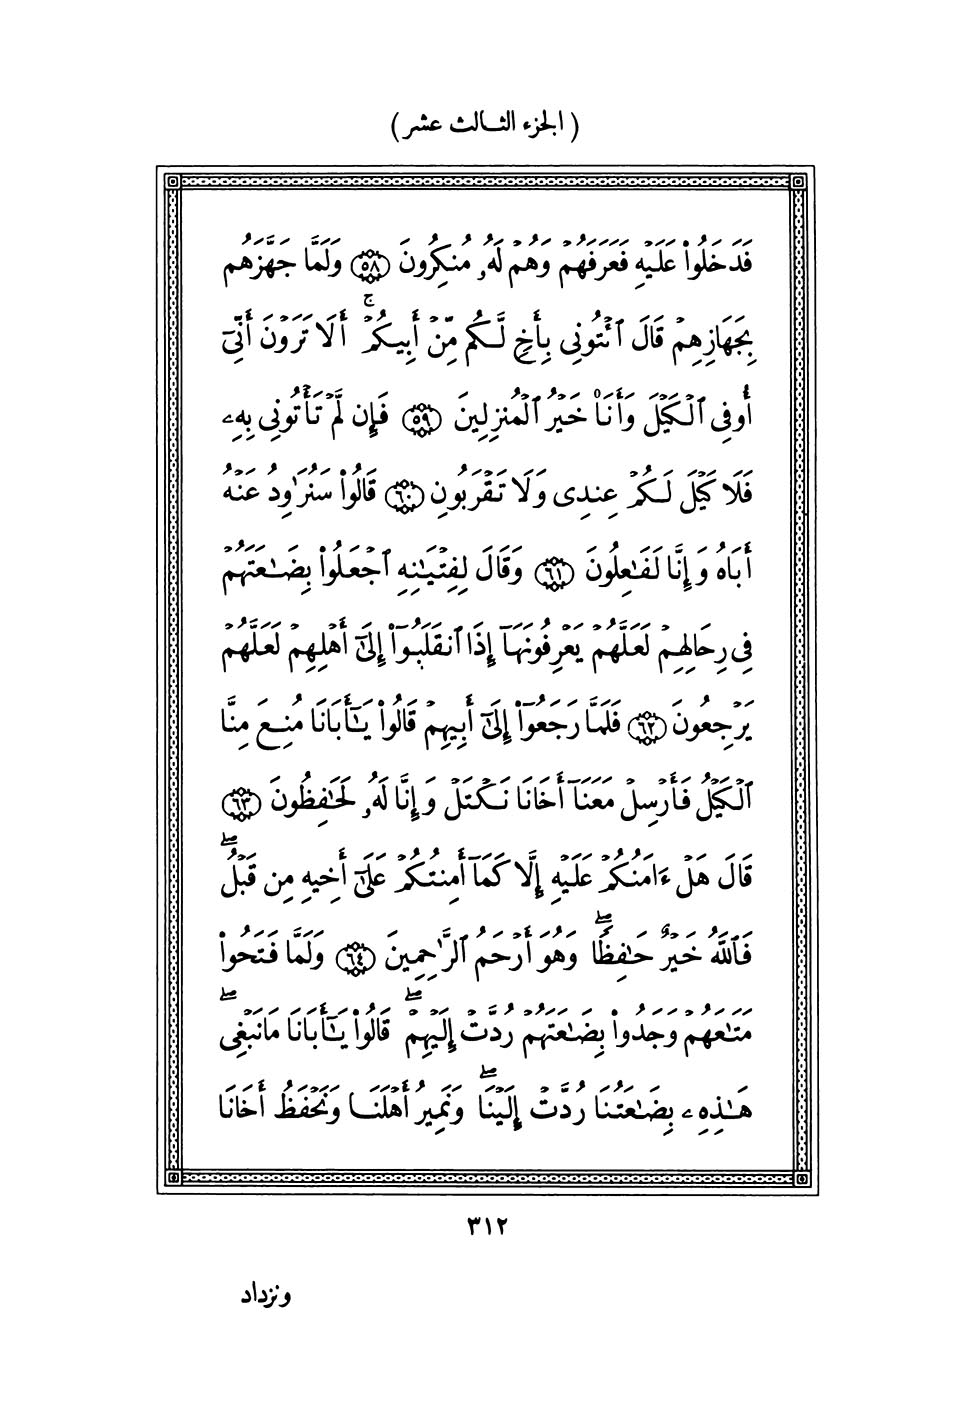 ( الجزء الثالث عشر )
فَدَخَلُوا۟ عَلَيْهِ فَعَرَفَهُمْ وَهُمْ لَهُۥ مُنكِرُونَ ۝٥٨ وَلَمَّا جَهَّزَهُم
بِجَهَازِهِمْ قَالَ ٱئْتُونِى بِأَخٍ لَّكُم مِّنْ أَبِيكُمْ ۚ أَلَا تَرَوْنَ أَنِّىٓ
أُوفِى ٱلْكَيْلَ وَأَنَا۠ خَيْرُ ٱلْمُنزِلِينَ ۝٥٩ فَإِن لَّمْ تَأْتُونِى بِهِۦ
فَلَا كَيْلَ لَكُمْ عِندِى وَلَا تَقْرَبُونِ ۝٦٠ قَالُوا۟ سَنُرَٰوِدُ عَنْهُ
أَبَاهُ وَإِنَّا لَفَٰعِلُونَ ۝٦١ وَقَالَ لِفِتْيَٰنِهِ ٱجْعَلُوا۟ بِضَٰعَتَهُمْ
فِى رِحَالِهِمْ لَعَلَّهُمْ يَعْرِفُونَهَآ إِذَا ٱنقَلَبُوٓا۟ إِلَىٰٓ أَهْلِهِمْ لَعَلَّهُمْ
يَرْجِعُونَ ۝٦٢ فَلَمَّا رَجَعُوٓا۟ إِلَىٰٓ أَبِيهِمْ قَالُوا۟ يَٰٓأَبَانَا مُنِعَ مِنَّا
ٱلْكَيْلُ فَأَرْسِلْ مَعَنَآ أَخَانَا نَكْتَلْ وَإِنَّا لَهُۥ لَحَٰفِظُونَ ۝٦٣
قَالَ هَلْ ءَامَنُكُمْ عَلَيْهِ إِلَّا كَمَآ أَمِنتُكُمْ عَلَىٰٓ أَخِيهِ مِن قَبْلُ ۖ
فَٱللَّهُ خَيْرٌ حَٰفِظًا ۖ وَهُوَ أَرْحَمُ ٱلرَّٰحِمِينَ ۝٦٤ وَلَمَّا فَتَحُوا۟
مَتَٰعَهُمْ وَجَدُوا۟ بِضَٰعَتَهُمْ رُدَّتْ إِلَيْهِمْ ۖ قَالُوا۟ يَٰٓأَبَانَا مَا نَبْغِى ۖ
هَٰذِهِۦ بِضَٰعَتُنَا رُدَّتْ إِلَيْنَا ۖ وَنَمِيرُ أَهْلَنَا وَنَحْفَظُ أَخَانَا
٣١٢
ونزداد